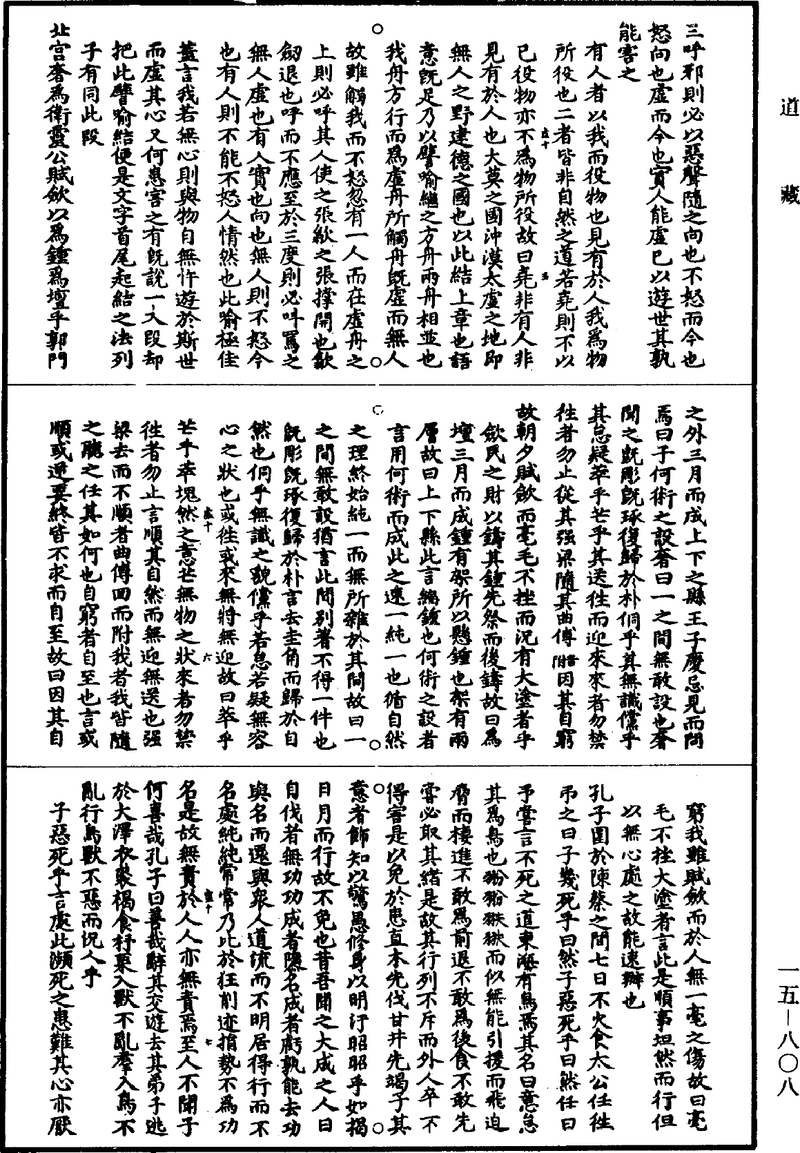 道藏
三呼邪則必以惡聲隨之向也不怒而今也
怒向也虛而今也實人能虛己以遊世其孰
能害之
有人者以我而役物也見有於人我為物
所役也二者皆非自然之道若堯則不以
己役物亦不為物所役故曰堯非有人非
見有於人也大莫之國沖漠太虛之地即
無人之野建德之國也以此結上章也語
意既足乃以譬喻繼之方舟兩舟相並也
我舟方行而為虛舟所觸舟既虛而無人
故雖觸我而不怒忽有一人而在虛舟之
上則必呼其人使之張歙之張撐開也歙
斂退也呼而不應至於三度則必叫罵之
無人虛也有人實也向也無人則不怒今
也有人則不能不怒人情然也此喻極佳
蓋言我若無心則與物自無忤遊於斯世
而虛其心又何患害之有既說一大段却
把此譬喻結便是文字首尾起結之法列
子有同此段
北宮奢為衛靈公賦歛以為鍾為壇乎郭門
之外三月而成上下之縣王子慶忌見而問
焉曰子何術之設奢曰一之間無敢設也奢
聞之既彫既琢復歸於朴侗乎其無識儻乎
其怠疑萃乎芒乎其送往而迎來來者勿禁
往者勿止從其強梁隨其曲傅音附因其自窮
故朝夕賦歛而毫毛不挫而況有大塗者乎
歛民之財以鑄其鍾先祭而後鑄故曰為
壇三月而成鍾有架所以懸鍾也架有兩
層故曰上下縣此言編鍾也何術之設者
言用何術而成此之速一純一也循自然
之理終始純一而無所雜於其間故曰一
之間無敢設猶言此間別著不得一件也
既彫既琢復歸於朴言去圭角而歸於自
然也侗乎無識之貌儻乎若怠若疑無容
心之狀也或往或來無將無迎故曰萃乎
芒乎萃塊然之意芒無物之狀來者勿禁
往者勿止言順其自然而無迎無送也強
梁去而不順者曲傅回而附我者我皆隨
之聽之任其如何也自窮者自至也言或
順或逆要終皆不求而自至故曰因其自
窮我雖賦歛而於人無一毫之傷故曰毫
毛不挫大塗者言此是順事坦然而行但
以無心處之故能速辦也
孔子圍於陳蔡之間七日不火食太公任往
弔之曰子幾死乎曰然子惡死乎曰然任曰
予嘗言不死之道東海有鳥焉其名曰意怠
其為鳥也翂翂翐翐而似無能引援而飛迫
脅而棲進不敢為前退不敢為後食不敢先
嘗必取其緒是故其行列不斥而外人卒不
得害是以免於患直木先伐甘井先竭子其
意者飾知以驚愚修身以明汙昭昭乎如揭
日月而行故不免也昔吾聞之大成之人曰
自伐者無功功成者隳名成者虧孰能去功
與名而還與眾人道流而不明居得行而不
名處純純常常乃比於狂削迹捐勢不為功
名是故無責於人人亦無責焉至人不聞子
何喜哉孔子曰善哉辭其交遊去其弟子逃
於大澤衣裘褐食杼栗入獸不亂羣入鳥不
亂行鳥獸不惡而況人乎
子惡死乎言處此瀕死之患難其心亦厭
一五—八〇八